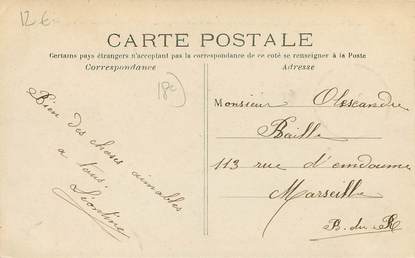 12 €
CARTE POSTALE
Certains pays étrangers n'acceptant pas la correspondance de ce coté se renseigner à la Poste
Correspondance
Adresse
Bien des choses aimables
a tous.
Léontine
Monsieur Alexandre
Baille
113 rue d'endoume
Marseille
B. du R